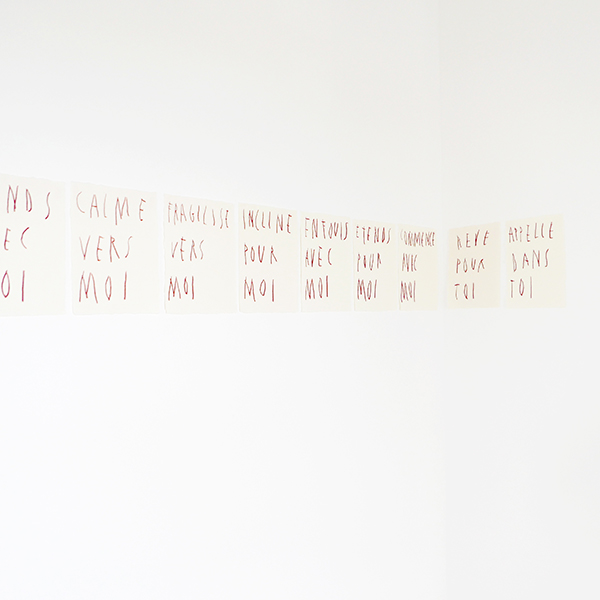 NDS
EC
OI
CALME
VERS
MOI
FRAGILISE
VERS
MOI
INCLINE
POUR
MOI
ENFOUIS
AVEC
MOI
ETENDS
POUR
MOI
COMMENCE
AVEC
MOI
REVE
POUR
TOI
APPELLE
DANS
TOI